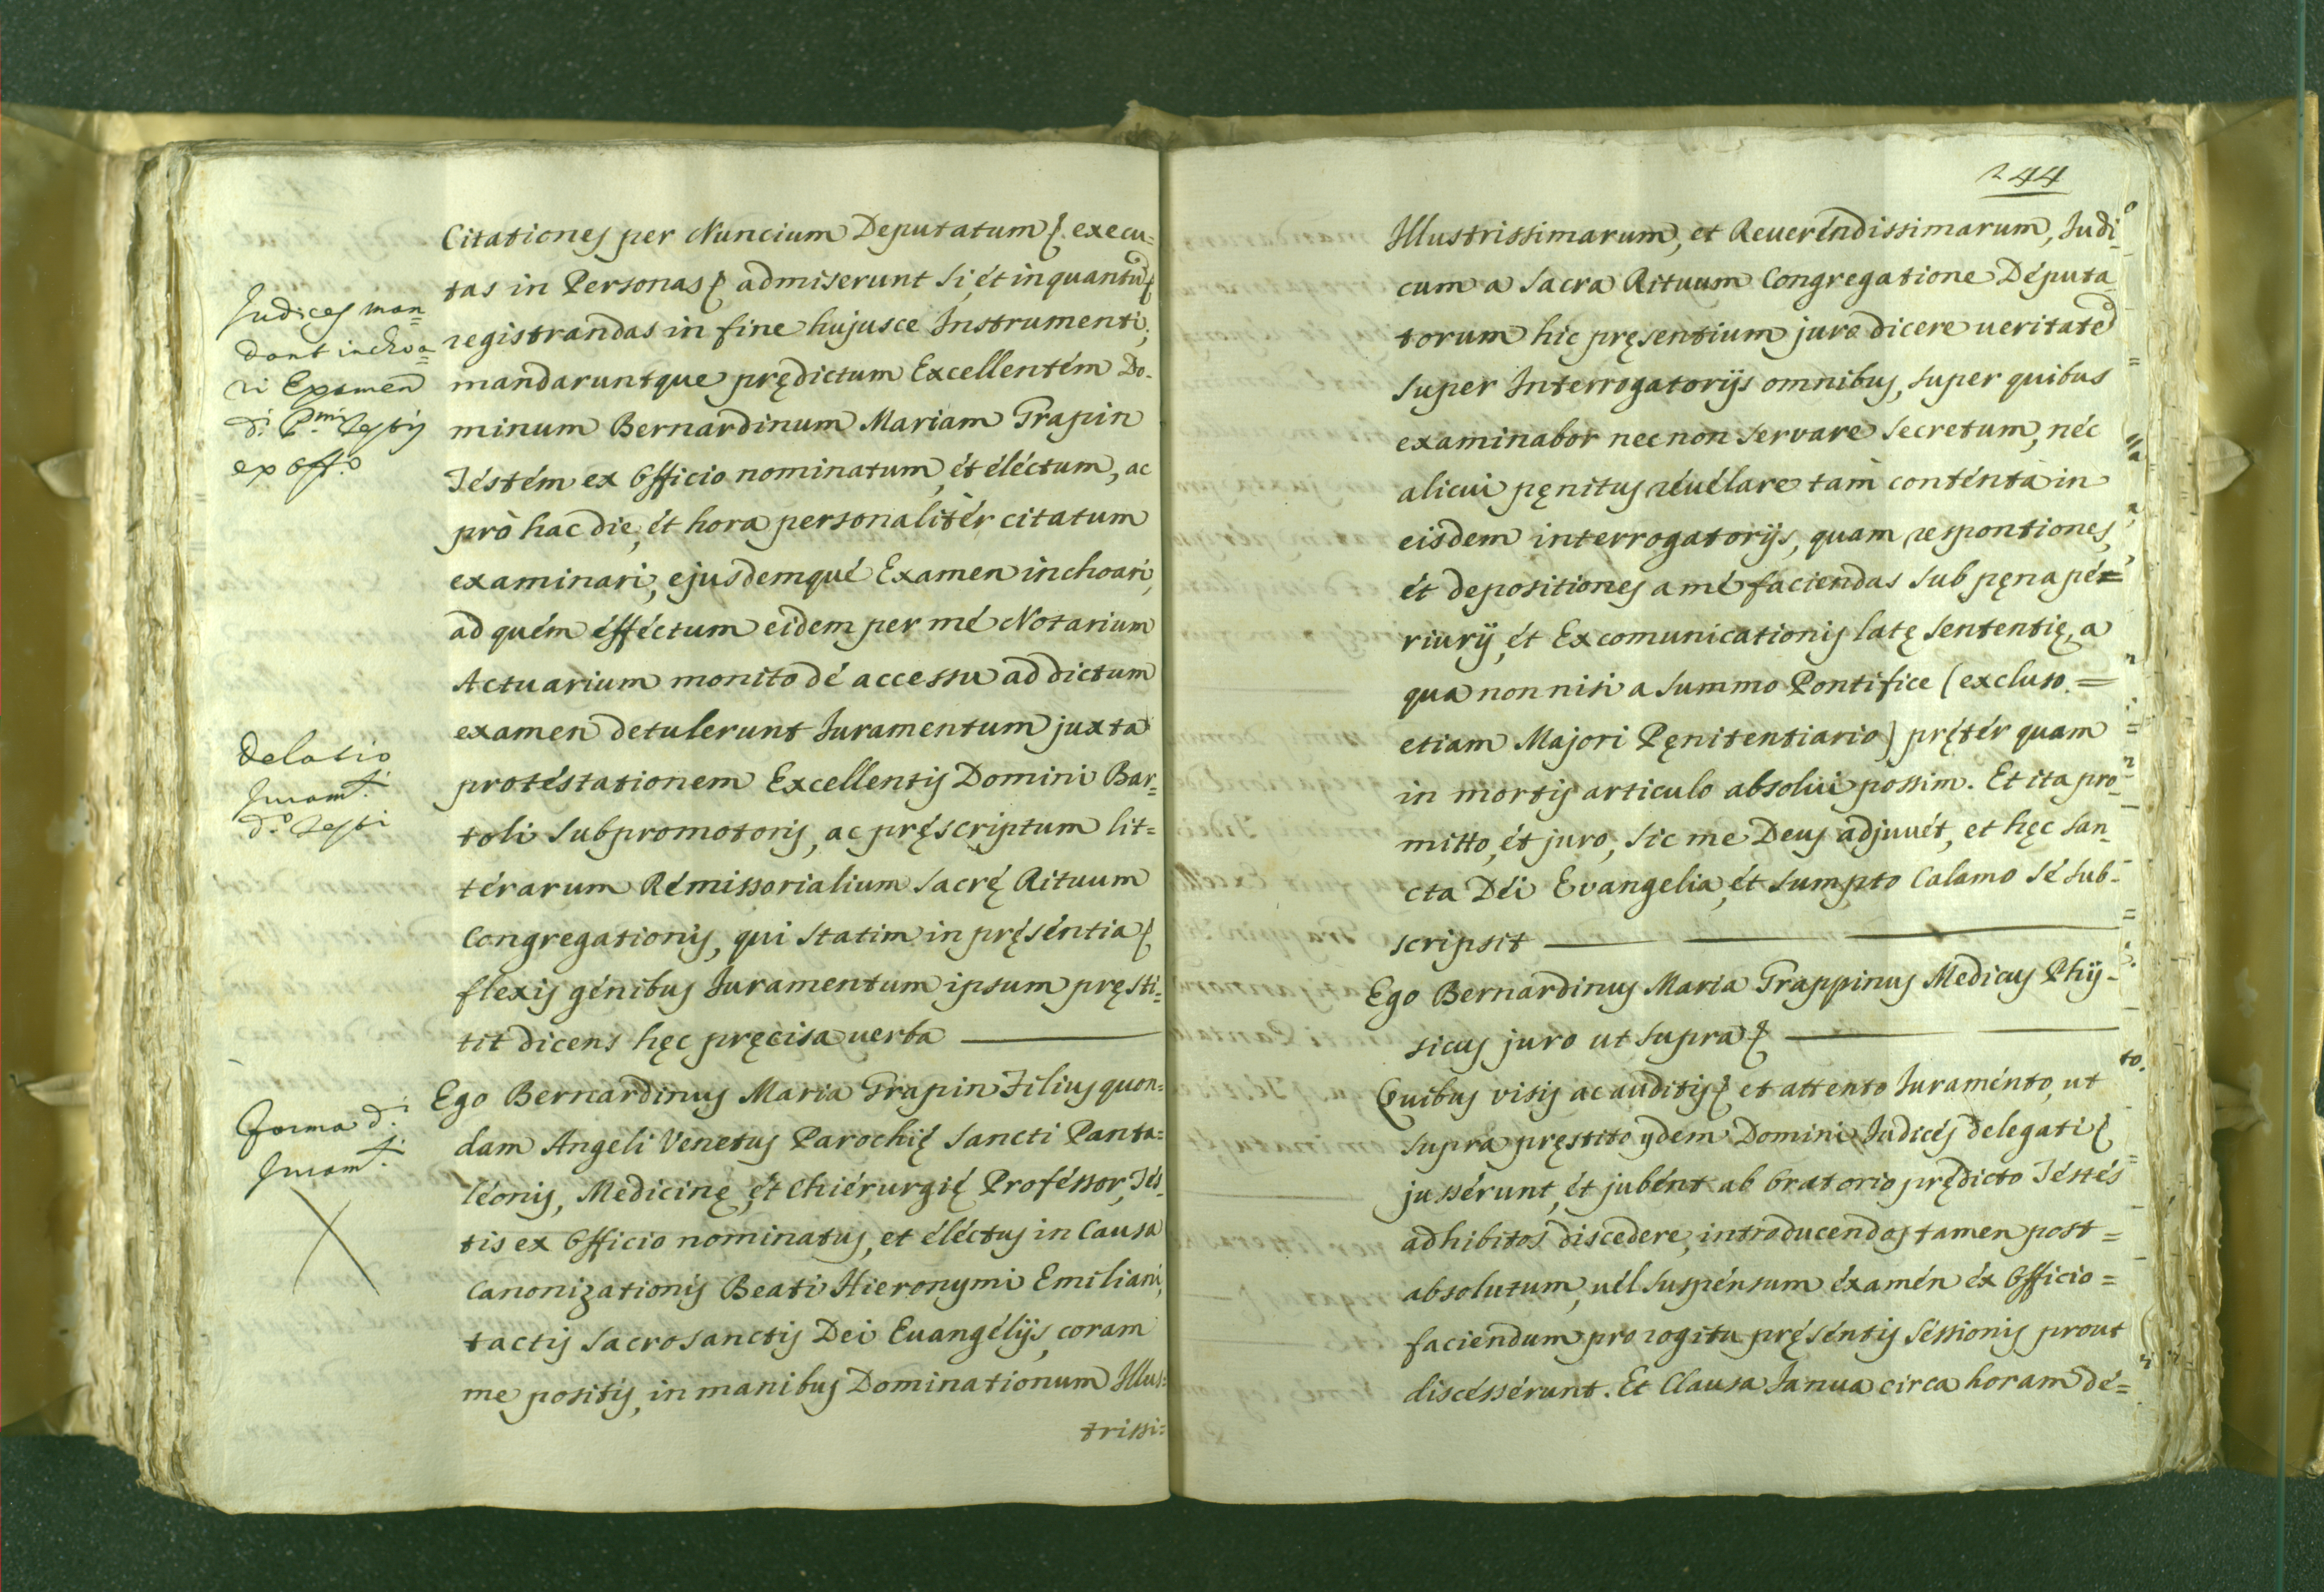 Citationes per Nuncium Deputatum & execu=
tas in Personas & admiserunt si, et inquantũ &
registrandas in fine hujusce Instrumenti,
mandaruntque prędictum Excellentém Do-
minum Bernardinum Mariam Grapin
Téstém ex Officio nominatum, ét éléctum, ac
prò hac die, ét hora personalitér citatum
examinari, ejusdemqué Examen inchoari,
ad quém éfféctum eidem per mé Notarium
Actuarium monito dé accessu ad dictum
examen detulerunt Iuramentum juxta
protéstationem Excellentis Domini Bar=
toli Subpromotoris, ac pręscriptum lit=
térarum Rémissorialium Sacrę Rituum
Congregationis, qui statim in pręséntia &
flexis génibus Iuramentum ipsum pręsti=
tit dicens hęc pręcisa uerba
Ego Bernardinus Maria Grapin Filius quon=
dam Angeli Venetus Parochię Sancti Panta=
léonis, Medicinę, ét Chiérurgię Proféssor, Tés-
tis ex Officio nominatus, et éléctus in Causa
Canonizationis Beati Hieronymi Emiliani,
tactis sacrosanctis Dei Euangélijs, coram
me positis, in manibus Dominationum Illus=
trissi=
Judices man=
dant inchoa=
ri Examen
d.i P.mi Testis
ex Off.o
Delatio
Juram.ti
d.o Testi
Forma d.i
Juram.ti
244
Illustrissimarum, et Reueréndissimarum, Iudi-
cum a Sacra Rituum Congregatione Députa
torum hic pręsentium juro dicere ueritatẽ
super Interrogatorijs omnibus, super quibus
examinabor nec non servare secretum, néc
alicui pęnitus réuélare tam conténta in
eisdem interrogatorijs, quam responsiones,
ét depositiones a mé faciendas sub pęna pér=
riurij, ét Excomunicationis latę sententię, a
qua non nisi a Summo Pontifice (excluso =
etiam Majori Pęnitentiario) pręter quam
in mortis articulo absolui possim. Et ita pro-
mitto, ét juro, sic me Deus adjuuét, et hęc San
cta Déi Evangelia, ét sumpto Calamo sé sub-
scripsit
Ego Bernardinus Maria Grappinus Medicus Phÿ-
sicus juro ut supra &
Quibus visis ac auditis & et attento Iuraménto, ut
supra pręstito ydem Domini Iudicés delegati &
jussérunt, ét jubént ab Oratorio prędicto Téstés
adhibitos discedere, introducendos tamen post =
absolutum, uél suspénsum éxamén éx Officio =
faciendum pro rogitu pręséntis séssionis prout
discéssérunt. Et Clausa Ianua circa horam dé=